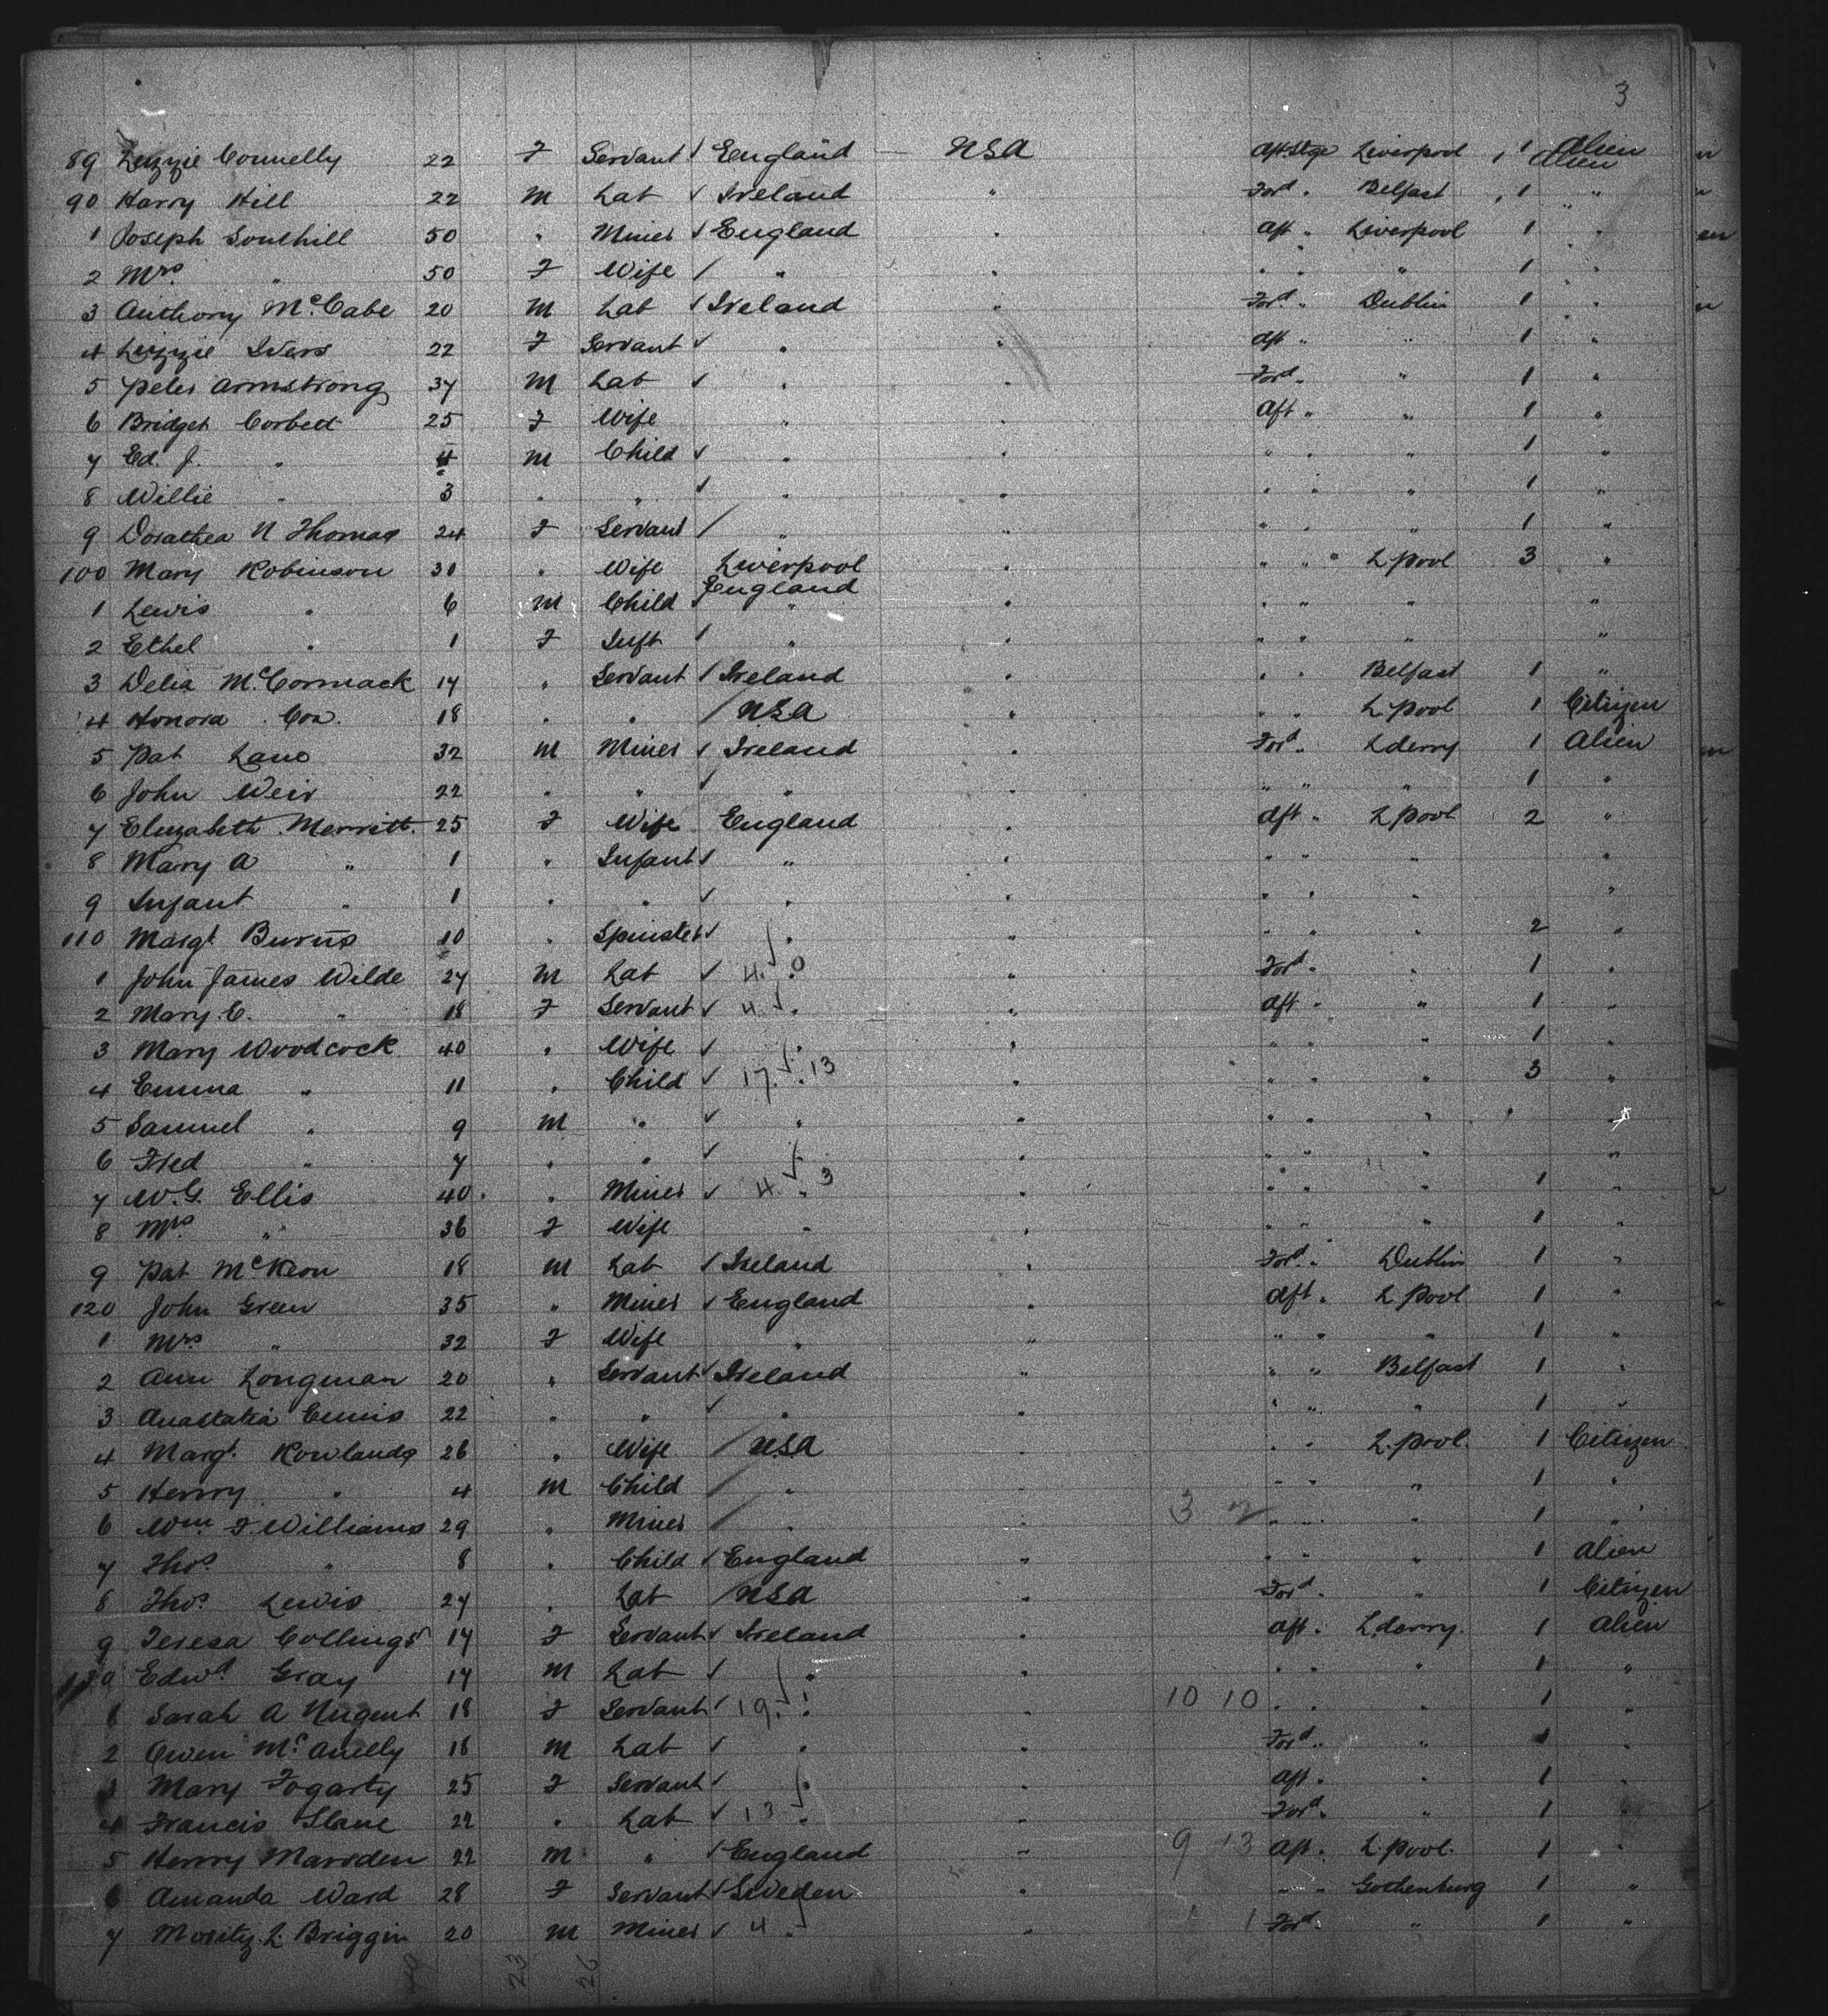 3
89 Lizzie Connelly 22 F Servant √ England — USA Aft Stge Liverpool 1 Alien Alien
90 Harry Hill 22 M Lab √ Ireland " Ford " Belfast 1 "
1 Joseph Southill 50 " Miner √ England " Aft " Liverpool 1 "
2 Mrs " 50 F Wife / " " " " " 1 "
3 Anthony McCabe 20 M Lab √ Ireland " Ford " Dublin 1 "
4 Lizzie Ivers 22 F Servant √ " " Aft " " 1 "
5 Peter Armstrong 37 M Lab √ " " Ford " " 1 "
6 Bridget Corbett 25 F Wife " " Aft " " 1 "
7 Ed. J. " 4 M Child √ " " " " " 1 "
8 Willie " 3 " " √ " " " " " 1 "
9 Dorathea N Thomas 24 F Servant / " " " " " 1 "
100 Mary Robinson 30 " Wife Liverpool England " " " L.pool 3 "
1 Lewis " 6 M Child " " " " " "
2 Ethel " 1 F Inft / " " " " " "
3 Delia McCormack 17 " Servant / Ireland " " " Belfast 1 "
4 Honora Cox 18 " " / USA " " " L.pool 1 Citizen
5 Pat Lane 32 M Miner √ Ireland " Ford " Lderry 1 Alien
6 John Weir 22 " " √ " " " " " 1 "
7 Elizabeth Merritt 25 F Wife England " Aft " L pool 2 "
8 Mary A " 1 " Infant √ " " " " " "
9 Infant " 1 " " √ " " " " " "
110 Margt Burns 10 " Spinster √ " " " " " 2 "
1 John James Wilde 27 M Lab √ 4. 0 " Ford " " 1 "
2 Mary C. " 18 F Servant √ 4. " " Aft " " 1 "
3 Mary Woodcock 40 " Wife √ " " " " " 1 "
4 Emma " 11 " Child √ 17. 13 " " " " 3 "
5 Samuel " 9 M " √ " " " " " "
6 Fred " 7 " " √ " " " " " "
7 W.G. Ellis 40 " Miner √ 4. 3 " " " " 1 "
8 Mrs " 36 F Wife " " " " " 1 "
9 Pat McKeon 18 M Lab √ Ireland " Ford " Dublin 1 "
120 John Green 35 " Miner √ England " Aft " L pool 1 "
1 Mrs " 32 F Wife " " " " " 1 "
2 Ann Longman 20 " Servant √ Ireland " " " Belfast 1 "
3 Anastatia Ennis 22 " " √ " " " " " 1 "
4 Margt Rowlands 26 " Wife / USA " " L.pool 1 Citizen
5 Henry " 4 M Child / " " " " " 1 "
6 Wm F. Williams 29 " Miner / " " 3 " " " 1 "
7 Thos " 8 " Child √ England " " " " 1 Alien
8 Thos Lewis 27 " Lab / USA " Ford " " 1 Citizen
9 Teresa Collings 17 F Servant √ Ireland " Aft " Lderry 1 Alien
130 Edwd Gray 17 M Lab √ " " " " " 1 "
1 Sarah A Nugent 18 F Servant √ 19. " " 10 10 " " " 1 "
2 Owen McAnelly 18 M Lab √ " " Ford " " 1 "
3 Mary Fogarty 25 F Servant √ " " Aft " " 1 "
4 Francis Slane 22 " Lab √ 13 " " Ford " " 1 "
5 Henry Marsden 22 M " √ England " 9 13 Aft " L.pool 1 "
6 Amanda Ward 28 F Servant √ Sweden " " " Gothenburg 1 "
7 Moritz L. Briggin 20 M Miner √ 4 " " 1 1 Ford " " 1 "
23 26